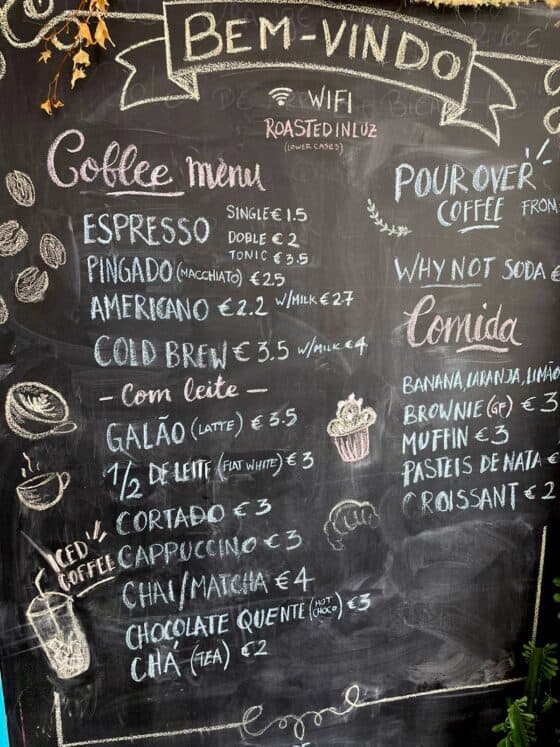 BEM-VINDO
WIFI
ROASTEDINLUZ
(LOWER CASES)
Coffee menu
ESPRESSO
SINGLE € 1.5
DOBLE € 2
TONIC € 3.5
PINGADO (MACCHIATO) € 2.5
AMERICANO € 2.2 W/MILK € 2.7
COLD BREW € 3.5 W/MILK € 4
- Com leite -
GALÃO (LATTE) € 3.5
1/2 DE LEITE (FLAT WHITE) € 3
CORTADO € 3
CAPPUCCINO € 3
CHAI/MATCHA € 4
CHOCOLATE QUENTE (HOT CHOCO) € 3
CHÁ (TEA) € 2
ICED COFFEE
POUR OVER
COFFEE FROM
WHY NOT SODA €
Comida
BANANA, LARANJA, LIMÃO
BROWNIE (GF) € 3
MUFFIN € 3
PASTEIS DE NATA €
CROISSANT € 2